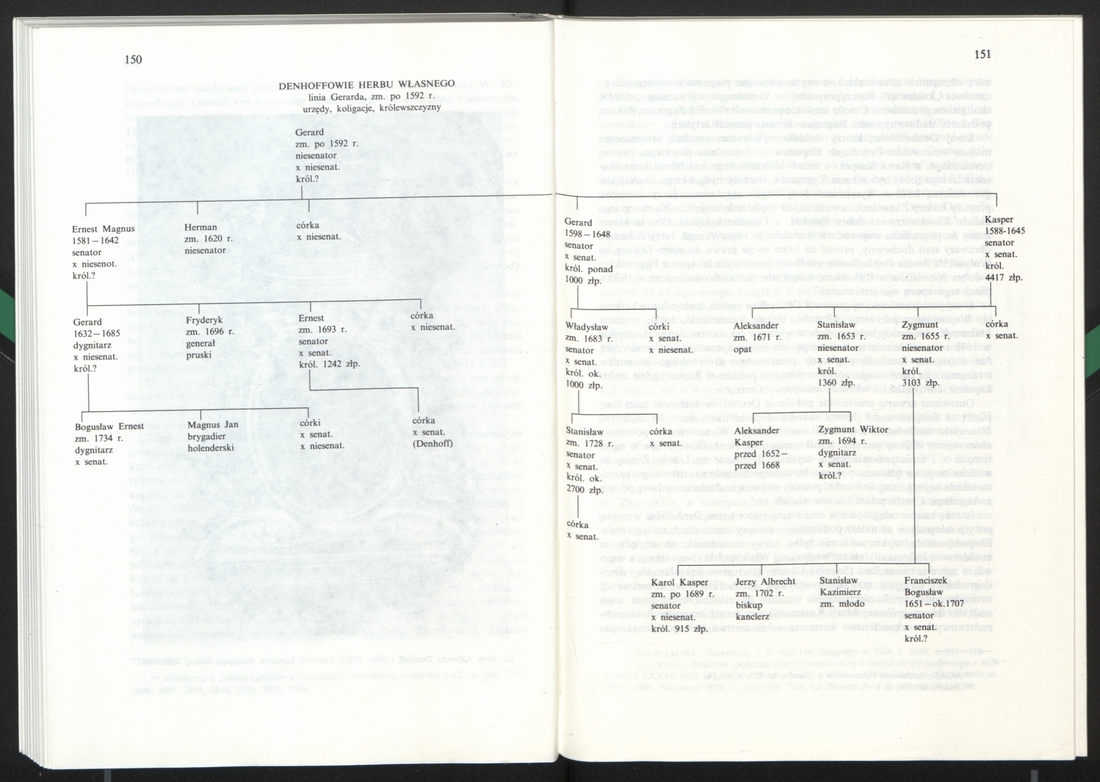 150
DENHOFFOWIE HERBU WŁASNEGO
linia Gerarda, zm. po 1592 r.
urzędy, koligacje, królewszczyzny
Gerard
zm. po 1592 r.
niesenator
x niesenat.
król.?
Ernest Magnus
1581—1642
senator
x niesenot.
król.?
Herman
zm. 1620 r.
niesenator
córka
x niesenat.
Gerard
1632—1685
dygnitarz
x niesenat.
król.?
Fryderyk
zm. 1696 r.
generał
pruski
Ernest
zm. 1693 r.
senator
x senat.
król. 1242 złp.
córka
x niesenat.
Bogusław Ernest
zm. 1734 r.
dygnitarz
x senat.
Magnus Jan
brygadier
holenderski
córki
x senat.
x niesenat.
córka
x senat.
(Denhoff)
151
Gerard
1598—1648
senator
x senat.
król. ponad
1000 złp.
Kasper
1588-1645
senator
x senat.
król.
4417 złp.
Władysław
zm. 1683 r.
senator
x senat.
król. ok.
1000 złp.
córki
x senat.
x niesenat.
Aleksander
zm. 1671 r.
opat
Stanisław
zm. 1653 r.
niesenator
x senat.
król.
1360 złp.
Zygmunt
zm. 1655 r.
niesenator
x senat.
król.
3103 złp.
córka
x senat.
Stanisław
zm. 1728 r.
senator
x senat.
król. ok.
2700 złp.
córka
x senat.
Aleksander
Kasper
przed 1652—
przed 1668
Zygmunt Wiktor
zm. 1694 r.
dygnitarz
x senat.
król.?
córka
x senat.
Karol Kasper
zm. po 1689 r.
senator
x niesenat.
król. 915 złp.
Jerzy Albrecht
zm. 1702 r.
biskup
kanclerz
Stanisław
Kazimierz
zm. młodo
Franciszek
Bogusław
1651—ok.1707
senator
x senat.
król.?